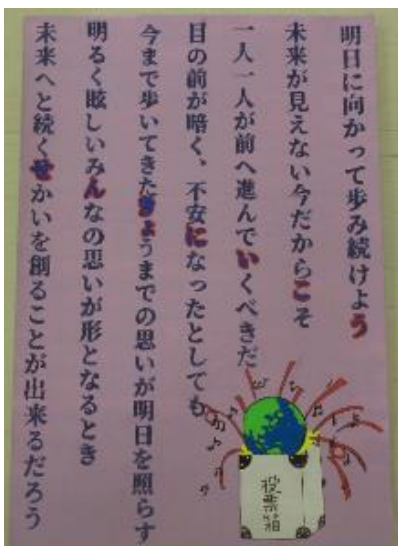 明日に向かって歩み続けよう
未来が見えない今だからこそ
一人一人が前へ進んでいくべきだ
目の前が暗く、不安になったとしても
今まで歩いてきたきょうまでの思いが明日を照らす
明るく眩しいみんなの思いが形となるとき
未来へと続くせかいを創ることが出来るだろう
投票箱